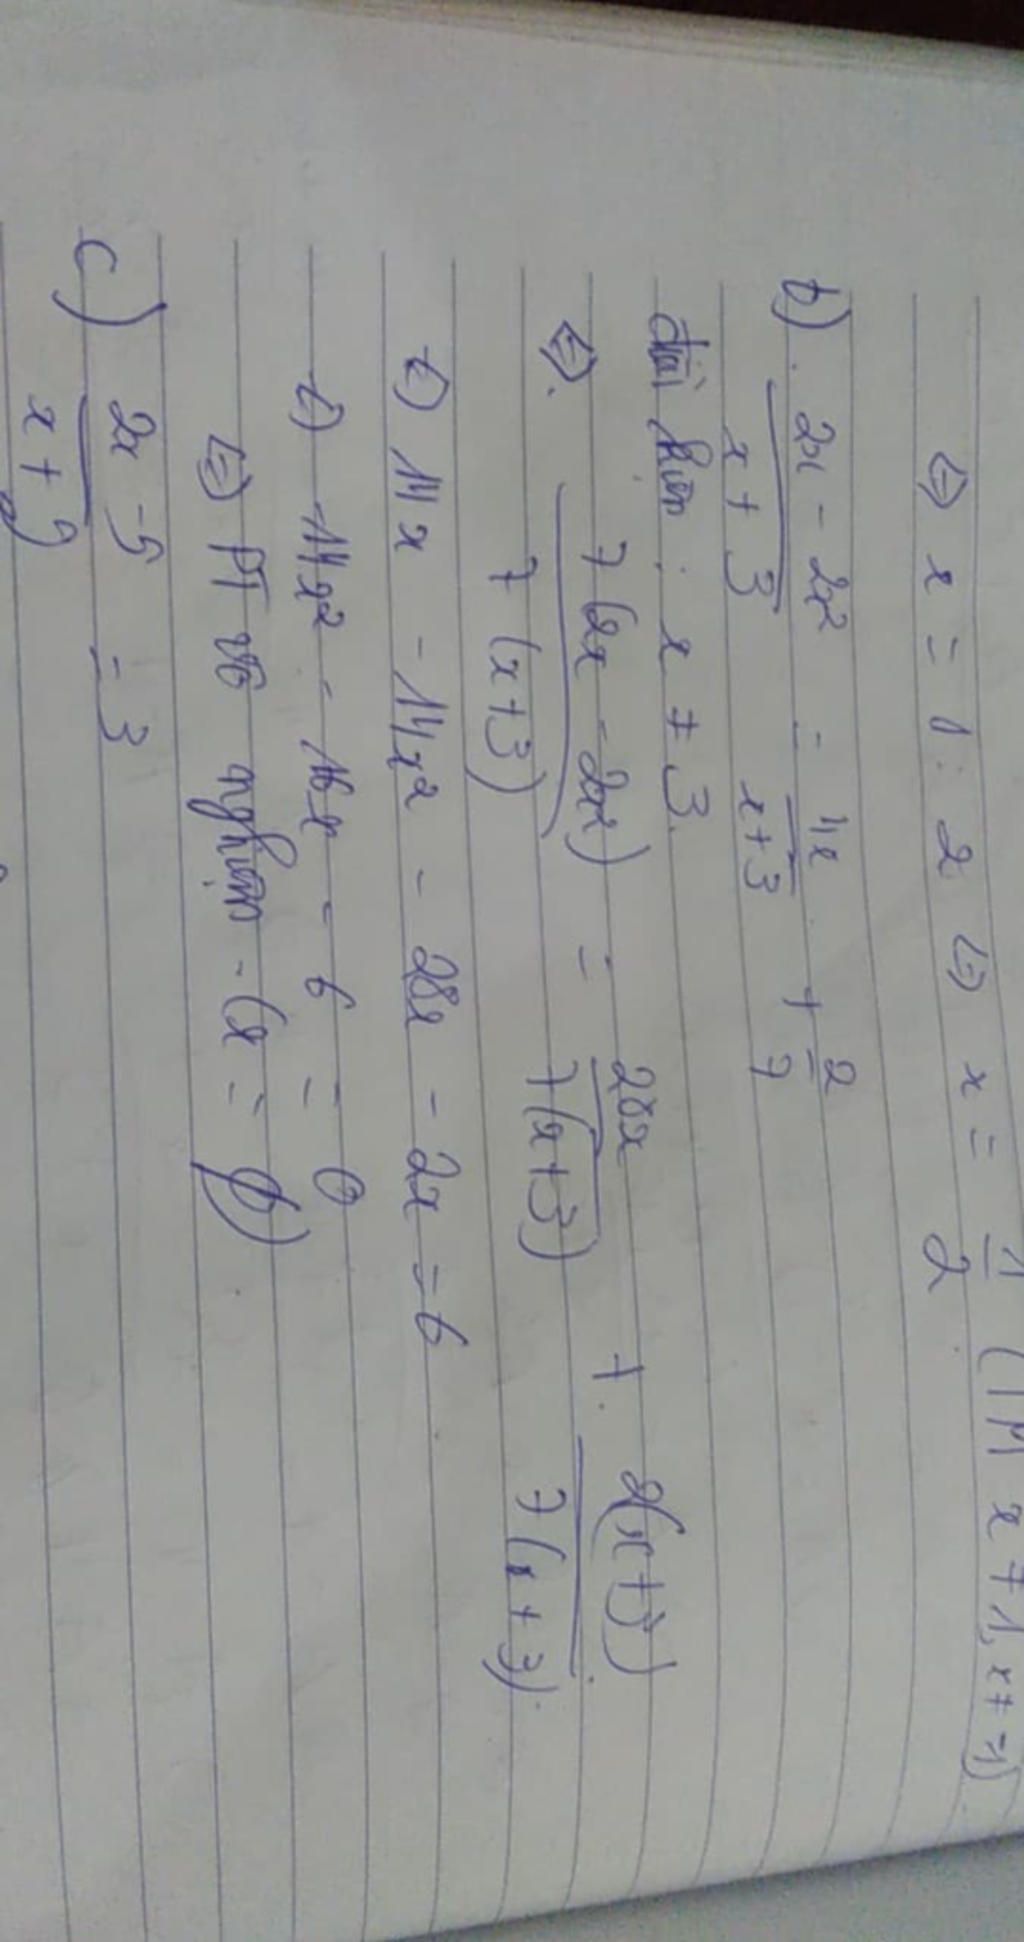 ⇔ x = 1 : 2 ⇔ x = 1/2 (TM x ≠ 1, x ≠ -1)
b) (2x - 2x²)/(x + 3) = 4x/(x+3) + 2/7
điều kiện : x ≠ 3.
⇔. 7(2x - 2x²)/7(x+3) = 28x/7(x+3) + 2(x+3)/7(x+3).
⇔ 14x - 14x² - 28x - 2x = 6
⇔ -14x² - 16x - 6 = 0
⇔ PT vô nghiệm - (x = ∅)
c) (2x - 5)/(x + 5) = 3